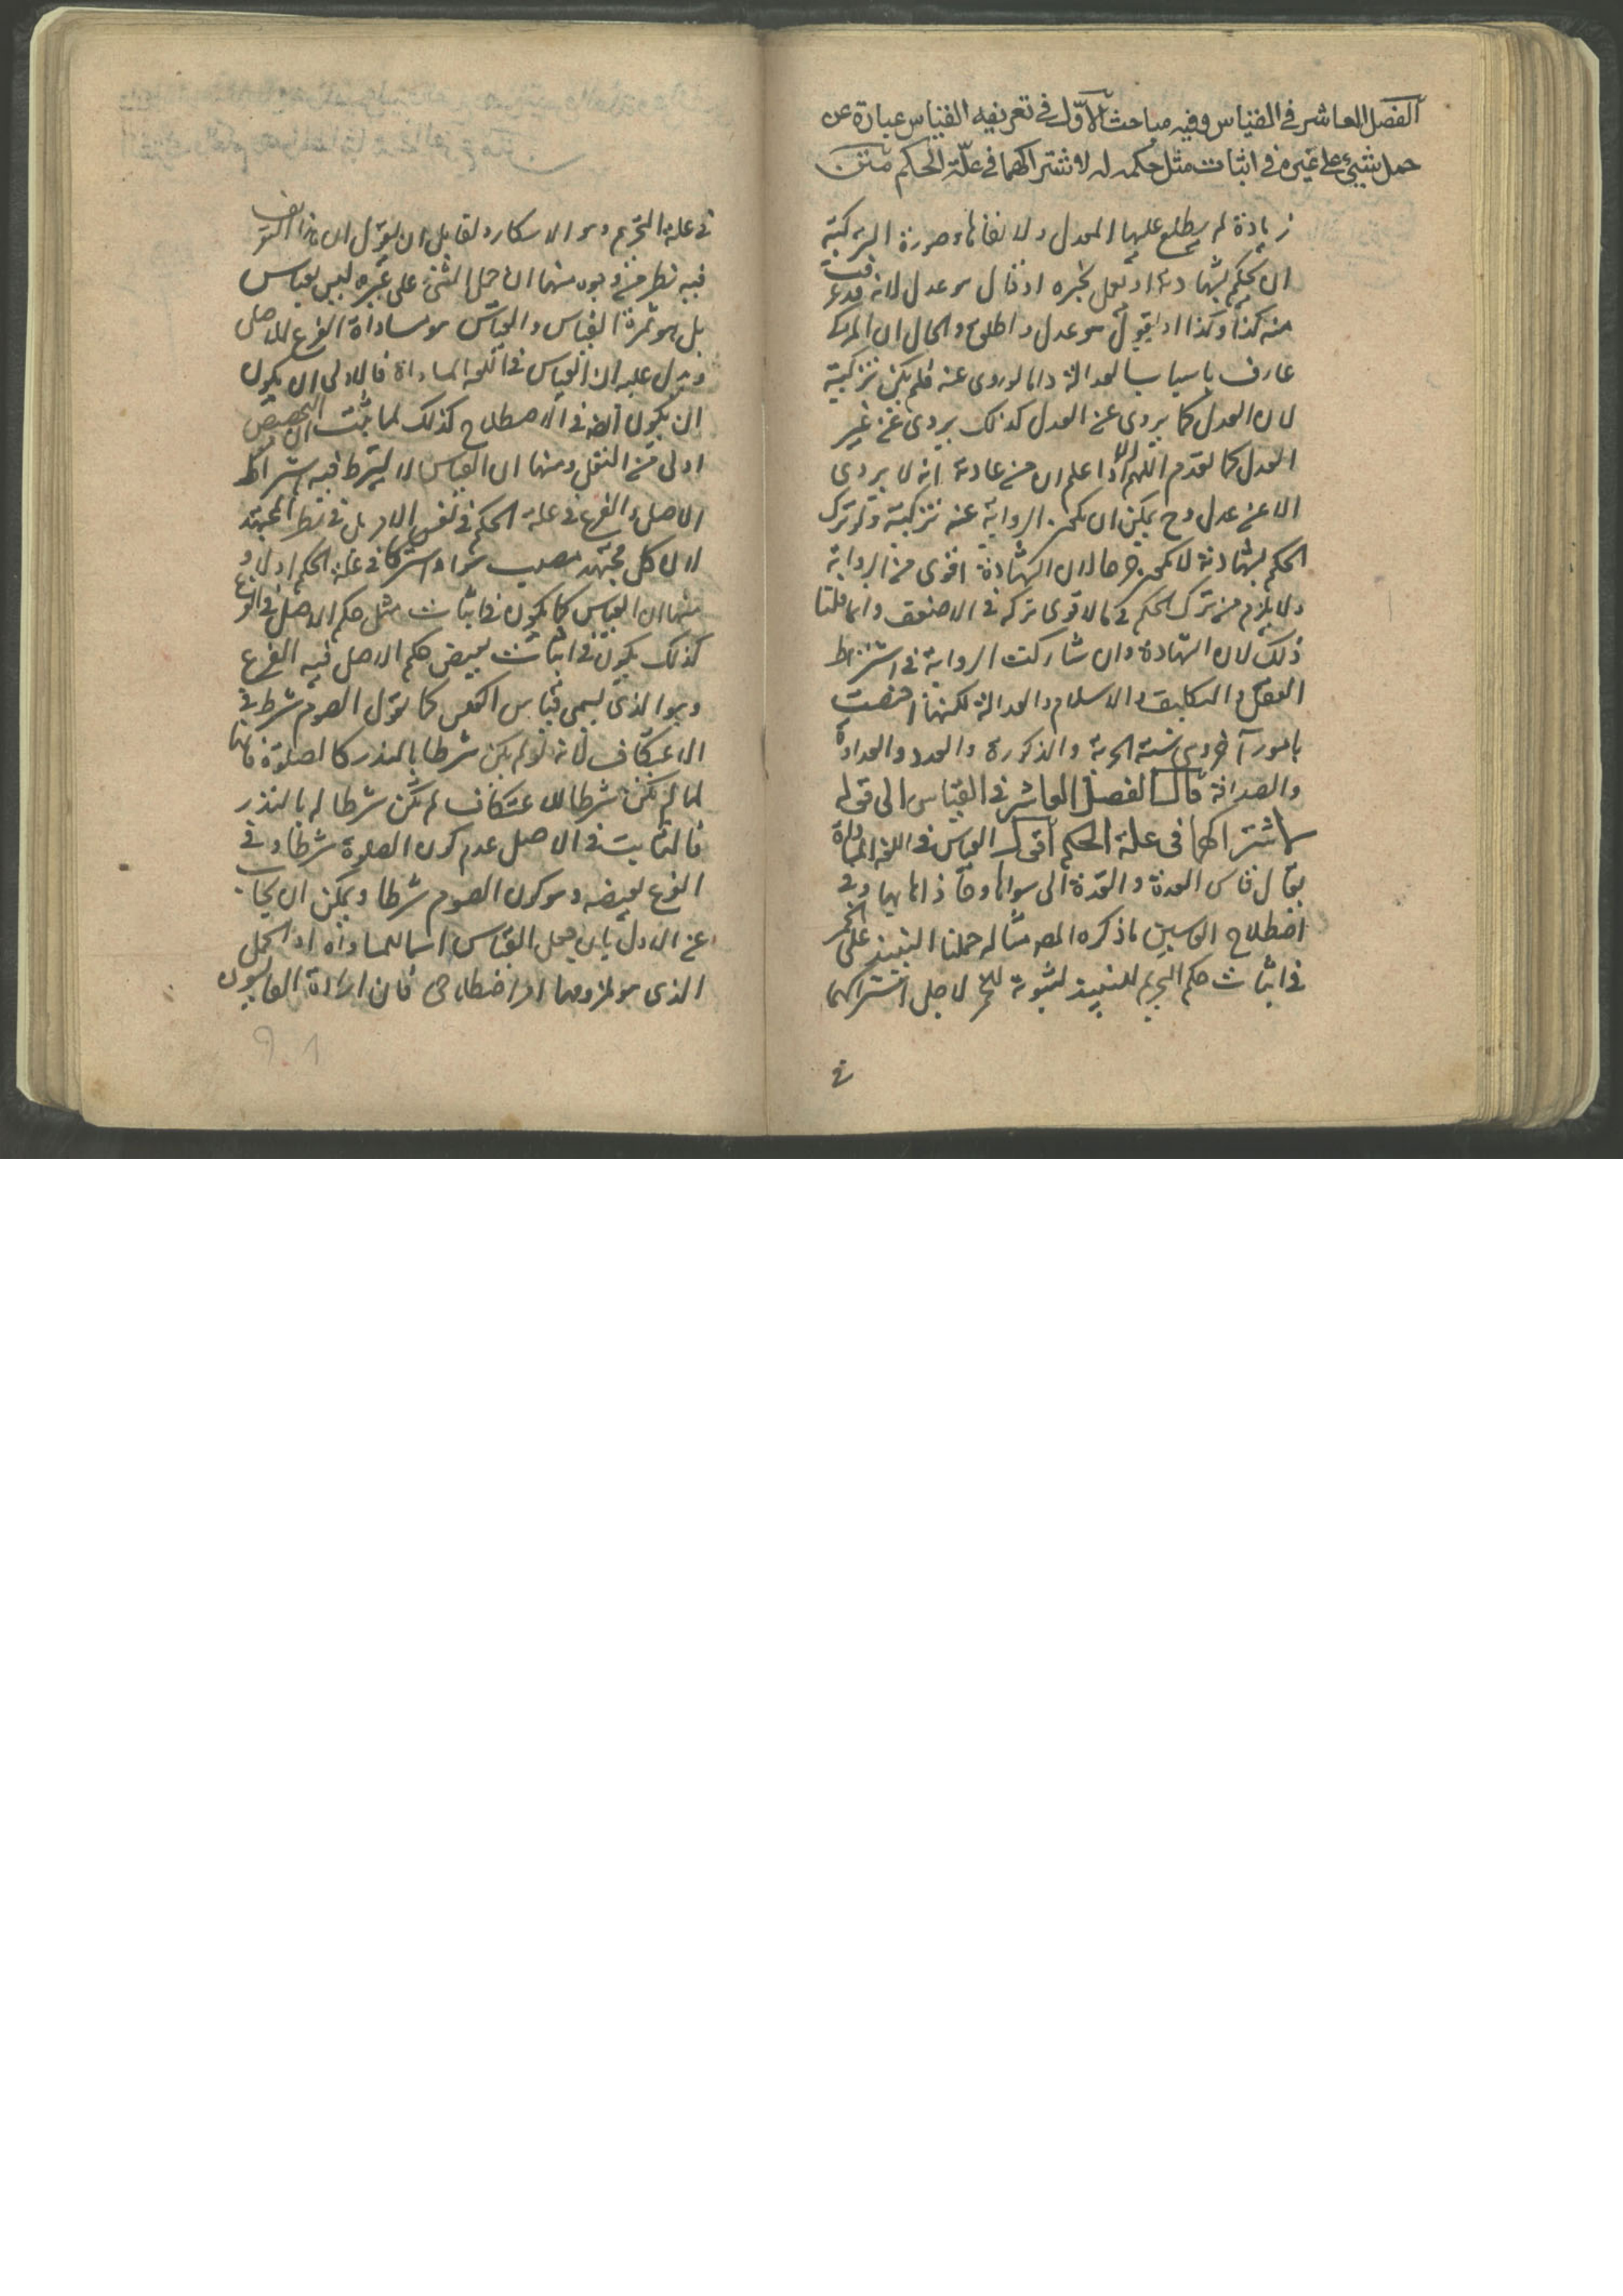 الفصل العاشر في القياس وفيه مباحث الأول في تعريفه القياس عبارة عن
حمل شيء على غيره في اثبات مثل حكمه له لاشتراكهما في علة الحكم متن
زيادة لم يطلع عليها المعدل ولا نفاها وصورة التزكية
ان يحكم بشهادته او يعمل بخبره او نقال هو عدل لانه قد عرفت
منه كذا وكذا او يقول هو عدل واطلق والحال ان المزكى
عارف باسباب العدالة واما لو روى عنه فلم يكن تزكية
لان العدل كما يروى عن العدل كذلك يروى عن غير
العدل كما تقدم اللهم الا اذا علم ان من عادته انه لا يروى
الا عن عدل وح يمكن ان يكون الرواية عنه تزكية ولو ترك
الحكم بشهادته لا يكون جرحا لان الشهادة اقوى من الرواية
ولا يلزم من ترك الحكم في الاقوى تركه في الاضعف وانما قلنا
ذلك لان الشهادة وان شاركت الرواية في اشتراط
العقل والتكليف والاسلام والعدالة لكنها اختصت
بامور آخر وهي ستة الحرية والذكورة والعدد والعداوة
والصداقة قال الفصل العاشر في القياس الى قوله
لاشتراكهما في علة الحكم اقول القياس في اللغة المساواة
يقال قاس القذة والقذة اى سواها وحاذاها بها وفي
اصطلاح القايسين ما ذكره المص مثاله حملنا النبيذ على الخمر
في اثبات حكم التحريم للنبيذ لثبوته للخمر لاجل اشتراكهما
في
في علة التحريم وهو الاسكار ولقايل ان يقول ان هذا التعريف
فيه نظر من وجوه منها ان حمل الشيء على غيره ليس بقياس
بل هو ثمرة القياس والقياس هو مساواة الفرع للاصل
ويدل عليه ان القياس في اللغة المساواة فالاولى ان يكون
ان يكون ايضا في الاصطلاح كذلك لما ثبت ان التخصيص
اولى من النقل ومنها ان القياس لا يشترط فيه اشتراك
الاصل والفرع في علة الحكم في نفس الامر بل في نظر المجتهد
لان كل مجتهد مصيب سواء اشتركا في علة الحكم او لا و
منها ان القياس كما يكون في اثبات مثل حكم الاصل في الفرع
كذلك يكون في اثبات نقيض حكم الاصل فيه الفرع
وهو الذى يسمى قياس العكس كما نقول الصوم شرط في
الاعتكاف لانه لو لم يكن شرطا بالنذر كالصلوة فانها
لما لم يكن شرطا للاعتكاف لم تكن شرطا له بالنذر
فالثابت في الاصل عدم كون الصلوة شرطا وفي
الفرع نقيضه وهو كون الصوم شرطا ويمكن ان يجاب
عن الاول بان جعل القياس اسما للمساواة او الحمل
الذى هو ملزومها امر اصطلاحى فان اراده القايسون